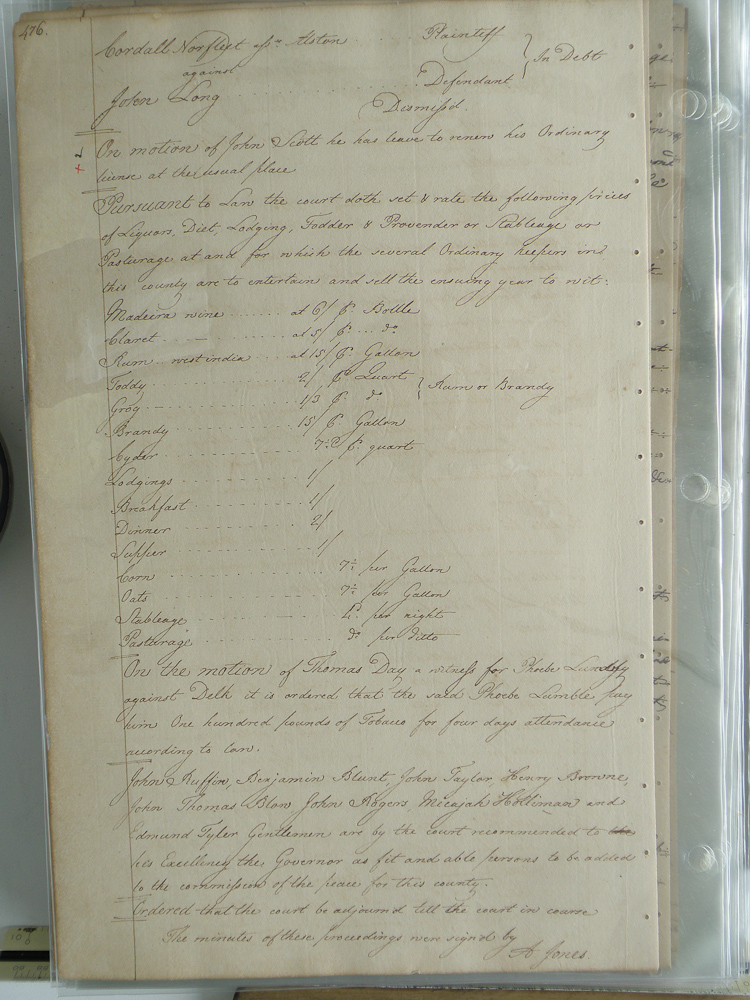 476.
Cordall Norfleet assee Alston . . . Plaintiff
against } In Debt
John Long . . . . . . . . . . . . . . Defendant
Dismissd.
On motion of John Scott he has leave to renew his Ordinary
license at the usual place
Pursuant to Law the court doth set & rate the following prices
of Liquors, Diet, Lodging, Fodder & Provender or Stableage or
Pasturage at and for which the several Ordinary keepers in
this county are to entertain and sell the ensuing year to wit:
Madeira wine . . . . . . at 6/ pr. Bottle
Claret . . . . . . at 5/ pr. . . do
Rum westindia . . . . at 15/ pr. Gallon
Toddy . . . . . . . . 2/ pr Quart } Rum or Brandy
Grog . . . . . . . . 1/3 pr. do
Brandy . . . . . . . . 15/ pr Gallon
Cyder . . . . . . . . 7½d pr. quart
Lodgings . . . . . . . . 1/
Breakfast . . . . . . . . 1/
Dinner . . . . . . . . 2/
Supper . . . . . . . . 1/
Corn . . . . . . . . 7½ per Gallon
Oats . . . . . . . . 7½ per Gallon
Stableage . . . . . . . . 4d. per night
Pasturage . . . . . . . . do per ditto
On the motion of Thomas Day a witness for Phoebe
against Delk it is ordered that the said Phoebe Lumble pay
him One hundred pounds of Tobacco for four days attendance
according to law.
John Ruffin, Benjamin Blunt, John Taylor, Henry Browne,
John Thomas Blow John Rogers, Micajah Holliman and
Edmund Tyler Gentlemen are by the court recommended to the
his Excellency the Governor as fit and able persons to be added
to the commission of the peace for this county.
Ordered that the court be adjournd till the court in course
The minutes of these proceedings were signd by
A Jones.